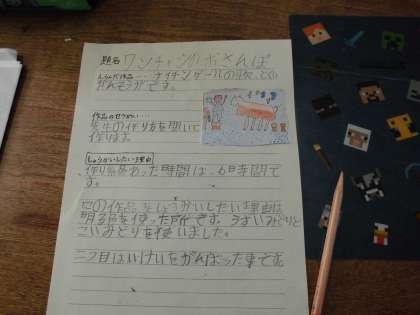 題名 ワンチャンのおさんぽ
えらんだ作品… ナイチンゲールの歌
がんそうです。
作品のせつめい…
先生の作り方を聞いて
作ります。
しょうかいしたい理由
作り にあった時間は、6時間で
す。
この作品をしょうかいしたい理由は
明る を使った所です。うすいみどりと
こいみどりを使いました。
二つ目は いけいをがんばった事です